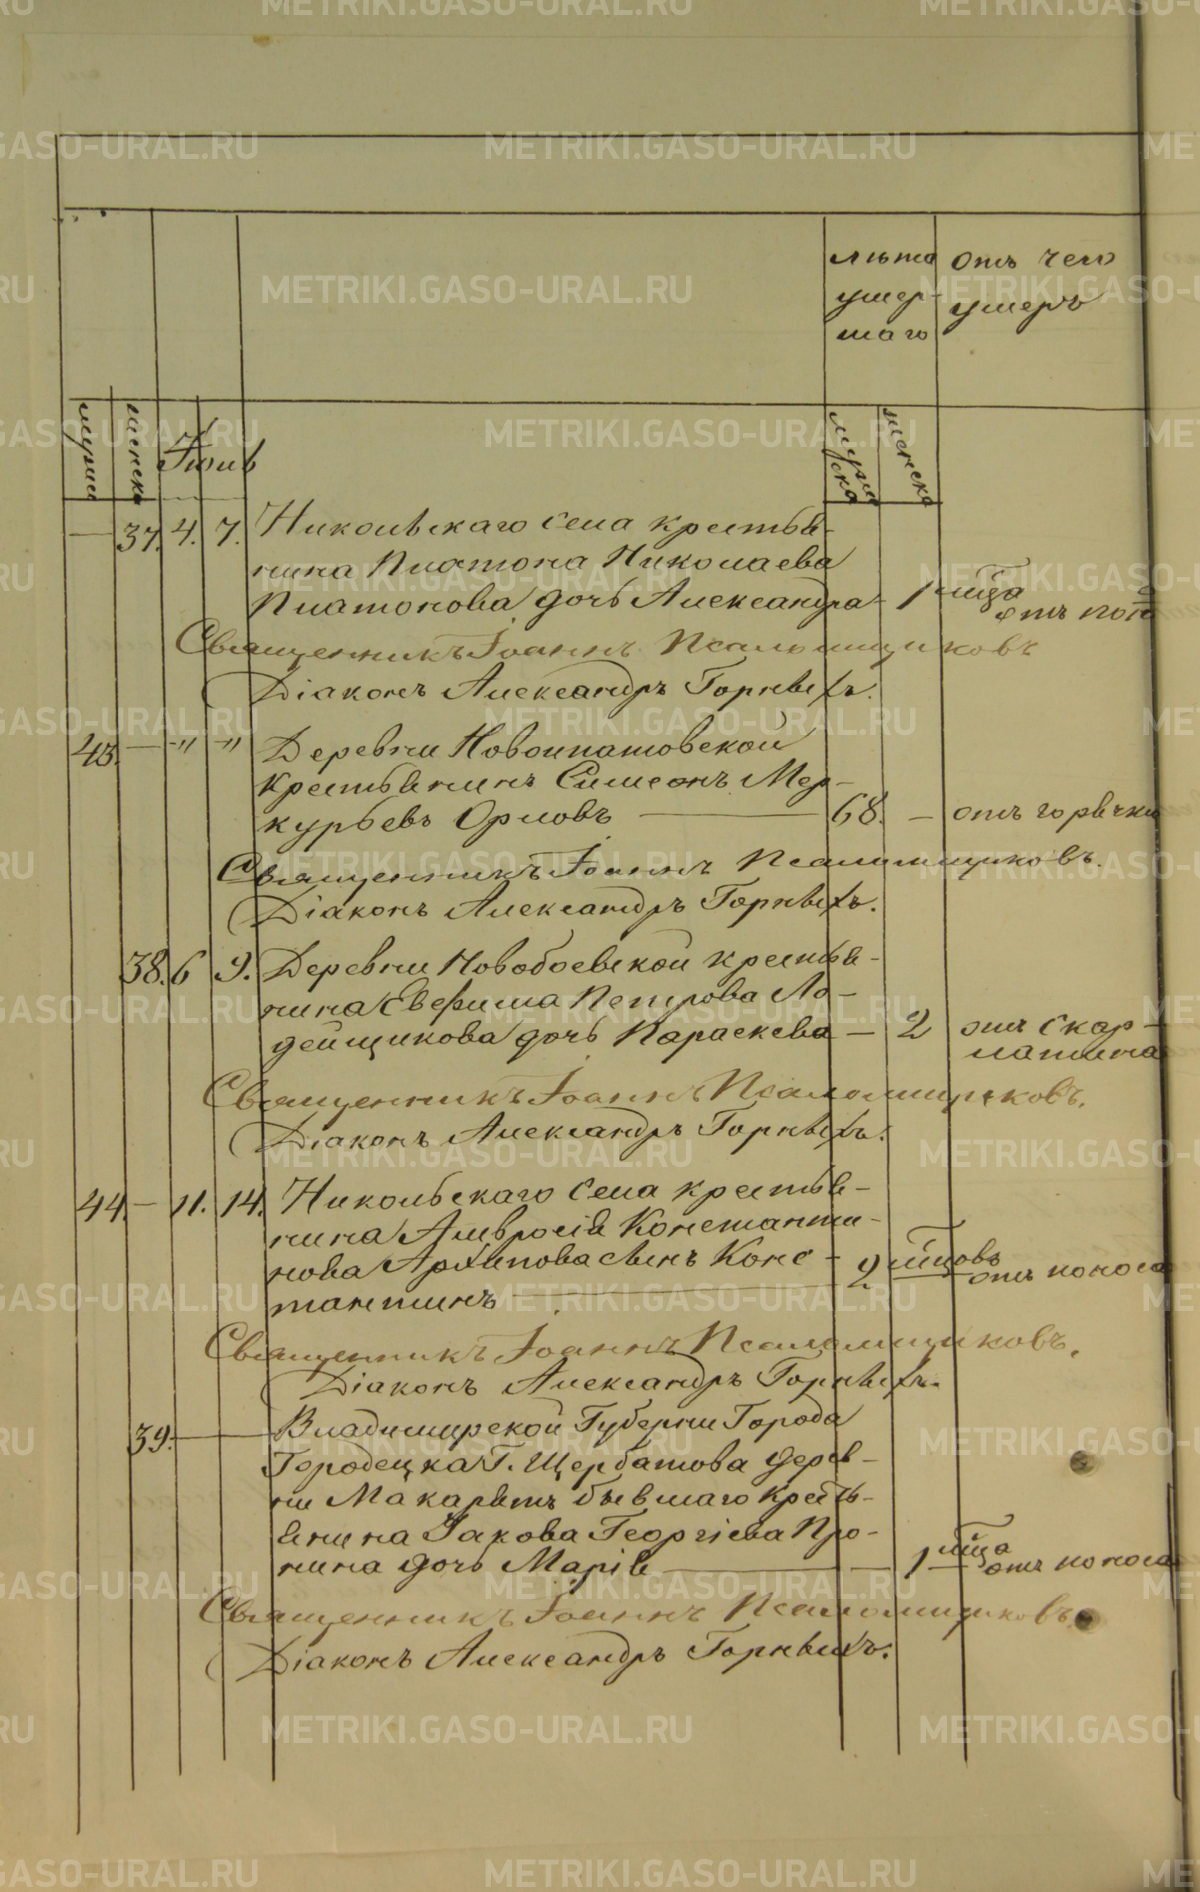 METRIKI.GASO-URAL.RU
лѣта
умер-
шаго
отъ чего
умеръ
мужеск
женска
Іюнь
мужеска
женска
— 37. 4. 7. Никольскаго села крестья-
нина Платона Николаева
Платонова дочь Александра - 1 м-ца
отъ поно
Священникъ Іоаннъ Псаломщиковъ
Діаконъ Александръ Горныхъ.
43. — -"- -"- Деревни Новоипатовской
крестьянинъ Симеонъ Мер-
курьевъ Орловъ — 68. — отъ горячки
Священникъ Іоаннъ Псаломщиковъ.
Діаконъ Александръ Горныхъ.
38. 6 9. Деревни Новобоевской крестья-
нина Евфима Петрова Ло-
дейщикова дочь Параскева — 2 отъ скар-
латина
Священникъ Іоаннъ Псаломщиковъ.
Діаконъ Александръ Горныхъ.
44. — 11. 14. Никольскаго села крестья-
нина Амвросія Константи-
нова Архипова сынъ Конс- 2 м-цовъ
тантинъ — отъ поноса
Священникъ Іоаннъ Псаломщиковъ.
Діаконъ Александръ Горныхъ.
39. — Владимирской Губерни Города
Городецка Г. Щербатова дерев-
ни Макарятъ бывшаго кресть-
янина Іакова Георгіева Про-
нина дочь Марія — 1 м-ца
отъ поноса
Священникъ Іоаннъ Псаломщиковъ.
Діаконъ Александръ Горныхъ.